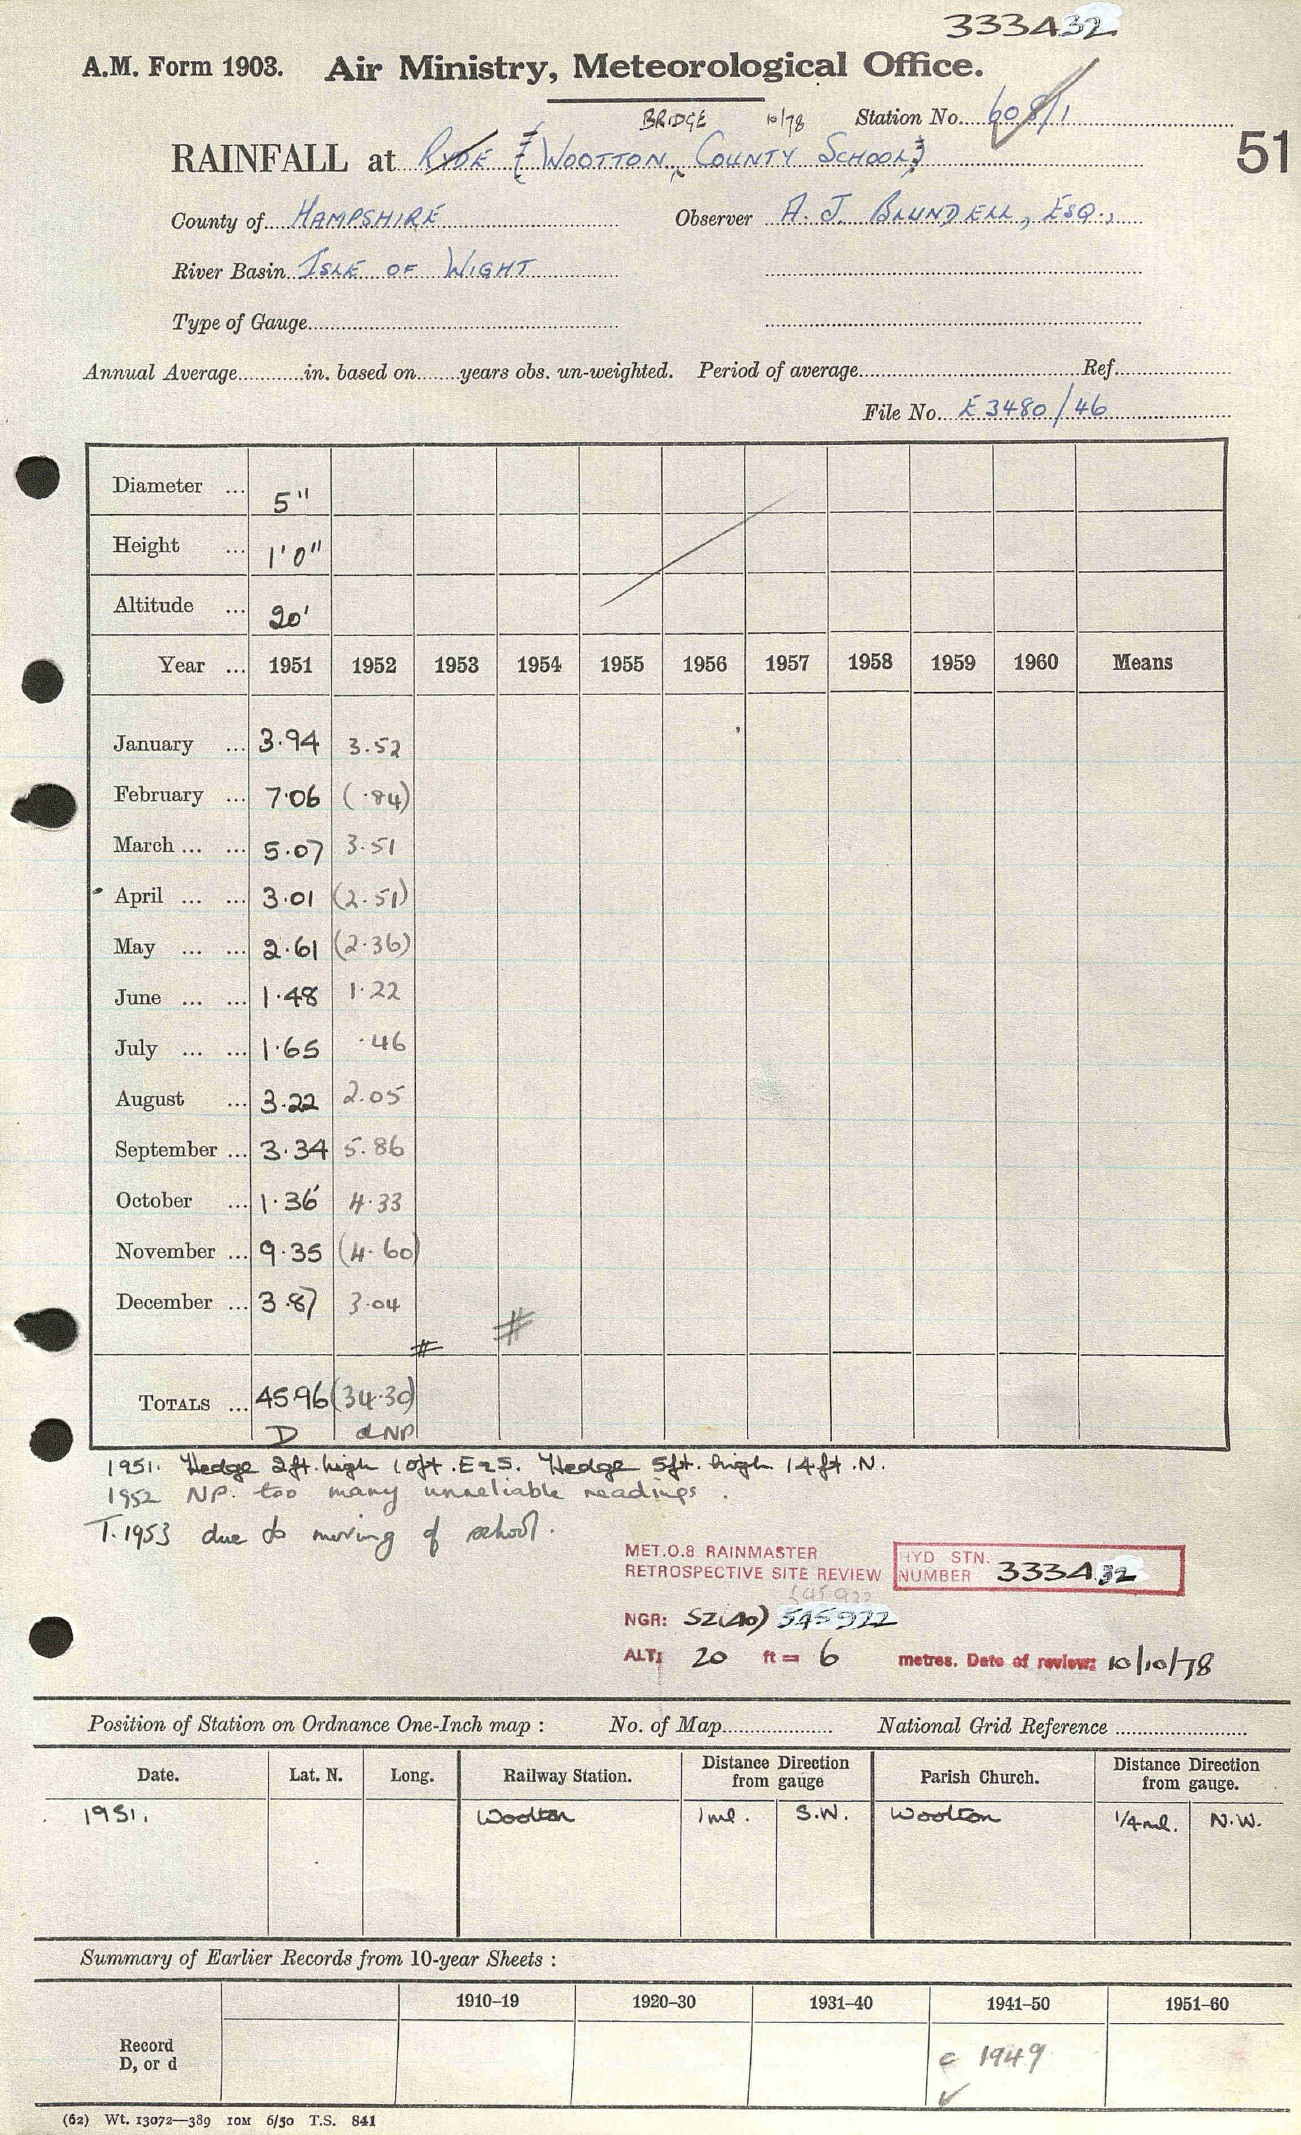 333432
A.M. Form 1903. Air Ministry, Meteorological Office.
BRIDGE 10/78 Station No. 608/1
RAINFALL at RYDE (WOOTTON, COUNTY SCHOOL) 51
County of HAMPSHIRE Observer A. J. BLUNDELL, ESQ.,
River Basin ISLE OF WIGHT
Type of Gauge
Annual Average in. based on years obs. un-weighted. Period of average Ref.
File No. E3480/46
Diameter ... 5"
Height ... 1'0"
Altitude ... 20'
Year ... 1951 1952 1953 1954 1955 1956 1957 1958 1959 1960 Means
January ... 3.94 3.52
February ... 7.06 (.84)
March ... ... 5.07 3.51
April ... ... 3.01 (2.51)
May ... ... 2.61 (2.36)
June ... ... 1.48 1.22
July ... ... 1.65 .46
August ... 3.22 2.05
September ... 3.34 5.86
October ... 1.36 4.33
November ... 9.35 (4.60)
December ... 3.87 3.04
TOTALS ... 45.96 (34.30)
D d NP
1951. Hedge 2ft. high 10ft. E & S. Hedge 5ft. high 14ft. N.
1952 NP. too many unreliable readings.
T. 1953 due to moving of school.
MET.O.8 RAINMASTER
RETROSPECTIVE SITE REVIEW
HYD STN. NUMBER 333432
545922
NGR: SZ(40) 545922
ALT: 20 ft = 6 metres. Date of review: 10/10/78
Position of Station on Ordnance One-Inch map : No. of Map National Grid Reference
Date. Lat. N. Long. Railway Station. Distance Direction from gauge Parish Church. Distance Direction from gauge.
1951. Wootton 1ml. S.W. Wootton 1/4ml. N.W.
Summary of Earlier Records from 10-year Sheets :
1910–19 1920–30 1931–40 1941–50 1951–60
Record
D, or d
c 1949
(62) Wt. 13072—389 10M 6/50 T.S. 841